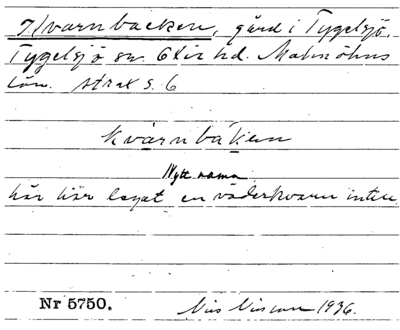 Kvarnbacken, gård i Tygelsjö,
Tygelsjö sn. Oxie hd. Malmöhus
län. strax S. 6
kvarnbaken
Nytt namn
här har legat en väderkvarn intill
Nr 5750. Nils Nilsson 1936.